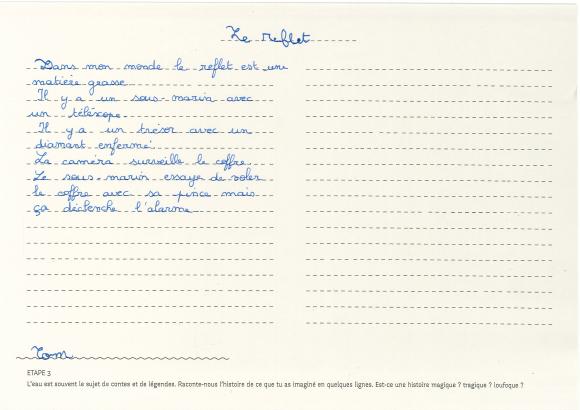 Le reflet
Dans mon monde le reflet est une
matière grasse
Il y a un sous-marin avec
un téléscope.
Il y a un trésor avec un
diamant enfermé.
La caméra surveille le coffre.
Le sous-marin essaye de voler
le coffre avec sa pince mais
ça déclenche l'alarme
Tom
ETAPE 3
L'eau est souvent le sujet de contes et de légendes. Raconte-nous l'histoire de ce que tu as imaginé en quelques lignes. Est-ce une histoire magique ? tragique ? loufoque ?